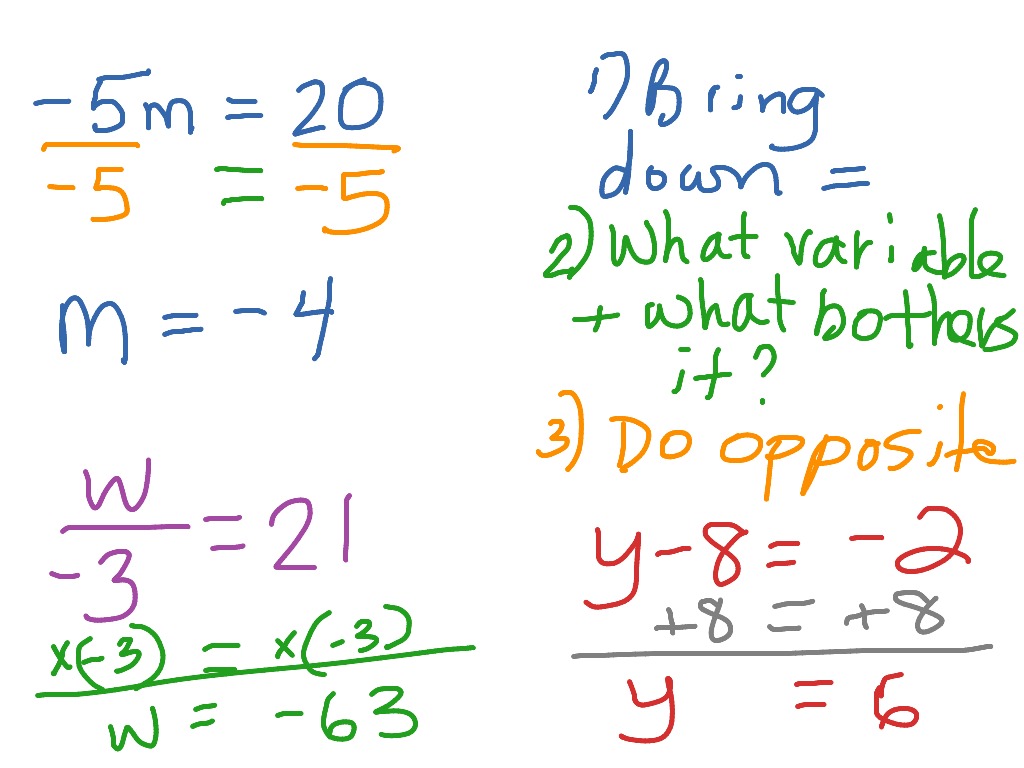 -5m = 20
-5 = -5
m = -4
w
-3 = 21
x(-3) = x(-3)
w = -63
1) Bring
down =
2) What variable
+ what bothers
it?
3) Do opposite
y - 8 = -2
+8 = +8
y = 6